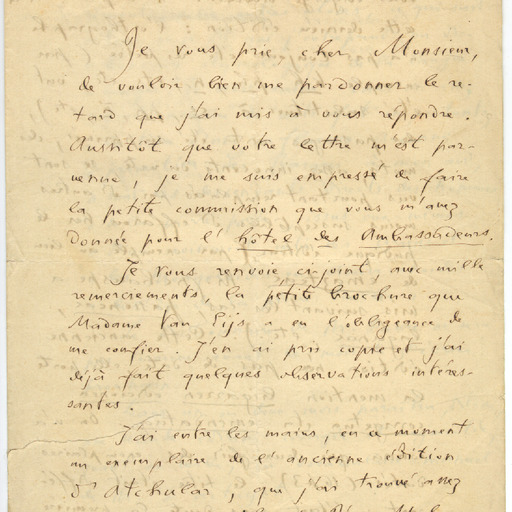 Je vous prie cher Monsieur,
de vouloir bien me pardonner le re-
tard que j'ai mis à vous répondre.
Aussitôt que votre lettre m'est par-
venue, je me suis empressé de faire
la petite commission que vous m'avez
donnée pour l'hôtel des Ambassadeurs.
Je vous renvoie ci-joint, avec mille
remerciements, la petite brochure que
Madame Van Eijs a eu l'obligeance de
me confier. J'en ai pris copie et j'ai
déjà fait quelques observations intéres-
santes.
J'ai entre les mains, en ce moment
un exemplaire de l'ancienne édition
d'Atchular, que j'ai trouvé avez